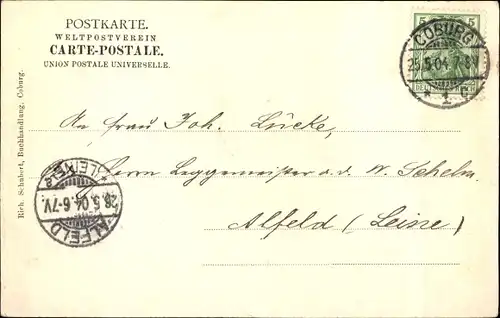 POSTKARTE.
WELTPOSTVEREIN
CARTE-POSTALE.
UNION POSTALE UNIVERSELLE.
5 5
COBURG
25.5.04.7-8V
* 1. c
DEUTSCHES REICH
An Frau Joh. Lücke,
Herrn Leggemeister a. d. W. Schelm.
Alfeld (Leine)
ALFELD
26.5.04.6-7V.
* (LEINE) *
Rich. Schubert, Buchhandlung, Coburg.